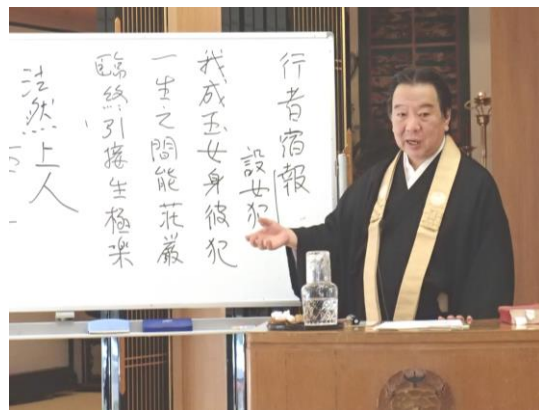 行者宿報
設女犯
我成玉女身彼犯
一生之間能荘厳
臨終引接生極楽
法然上人